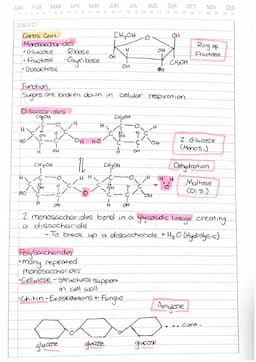 JAN FEB MAR APR MAY JUN JUL AUG SEP OCT NOV DEC
SUBJECT:
Carbs Cont.
Monosaccharides
• Glucose • Ribose
• Fructose
• Galactose
CH₂OH O OH
H OH
CH₂OH
OH H
Ring of
Fructose
Function
Sugars are broken down in cellular respiration
Disaccharides
CH₂OH CH₂OH
HO OH HO OH
2 Glucose
(Monos.)
CH₂OH CH₂OH
Dehydration
HO O OH + H H O
Maltose
(Di's)
2 monosaccharides bond in a glycosidic linkage creating
a disaccharide
- To break up a disaccharide + H₂O (Hydrolysis)
Polysaccharides
• many repeated
monosaccharides
• Cellulose - structural support
in cell wall
• Chitin - Exoskeletons + Fungus
Amylose
O O ... cont.
glucose glucose glucose